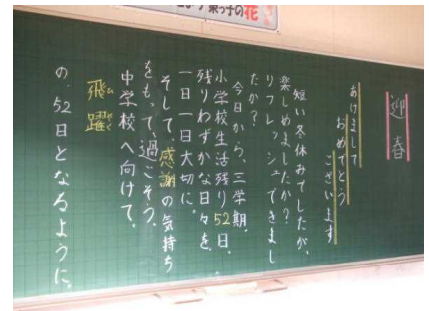 東っ子の花
迎春
あけまして
おめでとう
ございます
短い冬休みでしたが、
楽しめましたか？
リフレッシュできまし
たか？
今日から、三学期。
小学校生活残り52日。
残りわずかな日々を、
一日一日大切に。
そして、感謝の気持ち
をもって、過ごそう。
中学校へ向けて、
飛躍
の、52日となるように。